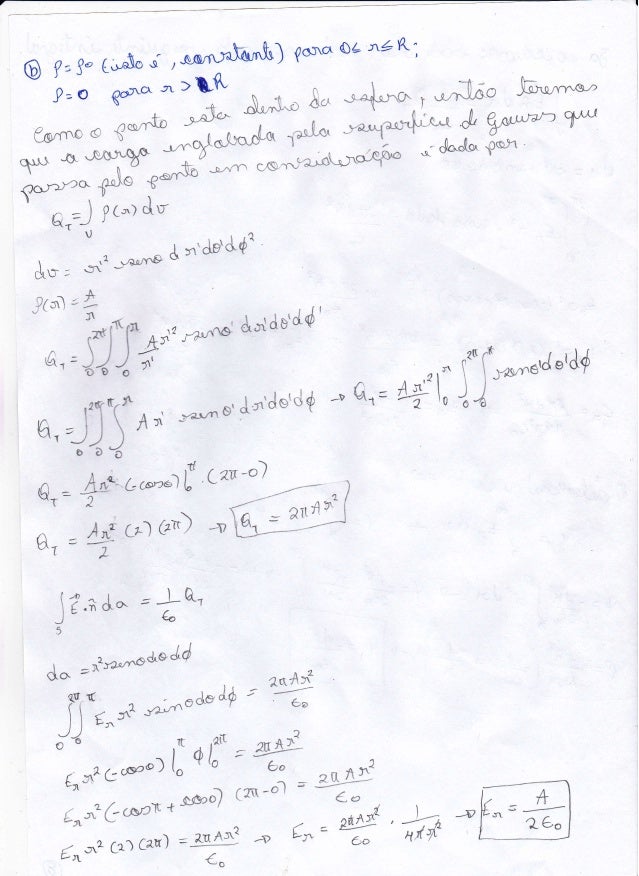 ⓑ ρ = ρ₀ (isto é, constante) para 0 ≤ r ≤ R;
ρ = 0 para r > R
Como o ponto esta dentro da esfera, então teremos
que a carga englobada pela superfície de Gauss que
passa pelo ponto em consideração é dada por.
Q_T = ∫_V ρ(r) dv
dv = r'² senθ dr'dθ'dϕ².
ρ(r) = A/r
Q_T = ∫₀^{2π} ∫₀^π ∫₀^r Ar'²/r' senθ' dr'dθ'dϕ'
Q_T = ∫₀^{2π} ∫₀^π ∫₀^r A r' senθ' dr'dθ'dϕ → Q_T = Ar'²/2 |₀^r ∫₀^{2π} ∫₀^π senθ'dθ'dϕ
Q_T = Ar²/2 (-cosθ)|₀^π . (2π-0)
Q_T = Ar²/2 (2) (2π) → Q_T = 2πAr²
∫_S E⃗ . n̂ da = 1/ε₀ Q_T
da = r² senθdθdϕ
∫₀^{2π} ∫₀^π E_r r² senθdθdϕ = 2πAr²/ε₀
E_r r² (-cosθ)|₀^π ϕ|₀^{2π} = 2πAr²/ε₀
E_r r² (-cosπ + cos0) (2π-0) = 2πAr²/ε₀
E_r r² (2) (2π) = 2πAr²/ε₀ → E_r = 2πAr²/ε₀ . 1/4πr² → E_r = A/2ε₀